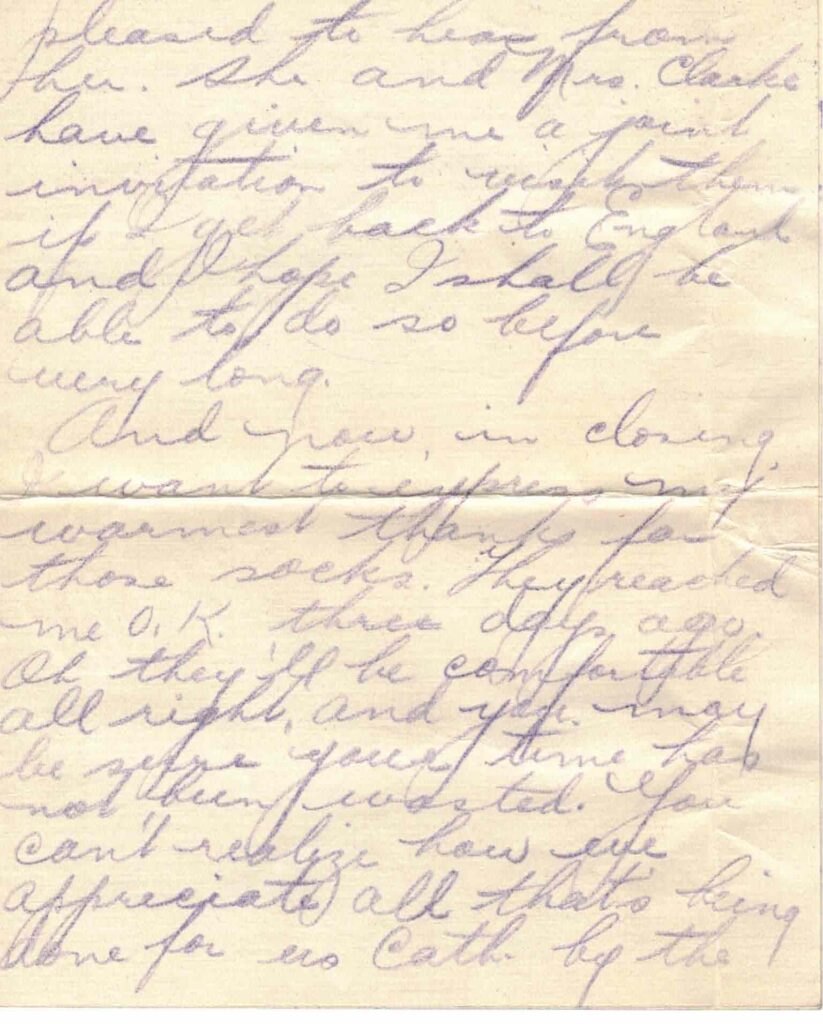 pleased to hear from
her. She and Mrs. Clarke
have given me a joint
invitation to visit them
if I get back to England
and I hope I shall be
able to do so before
very long.
And now, in closing
I want to express my
warmest thanks for
those socks. They reached
me O.K. three days ago.
Oh they'll be comfortable
all right, and you may
be sure your time has
not been wasted. You
can't realize how we
appreciate all that's being
done for us Cath. by the